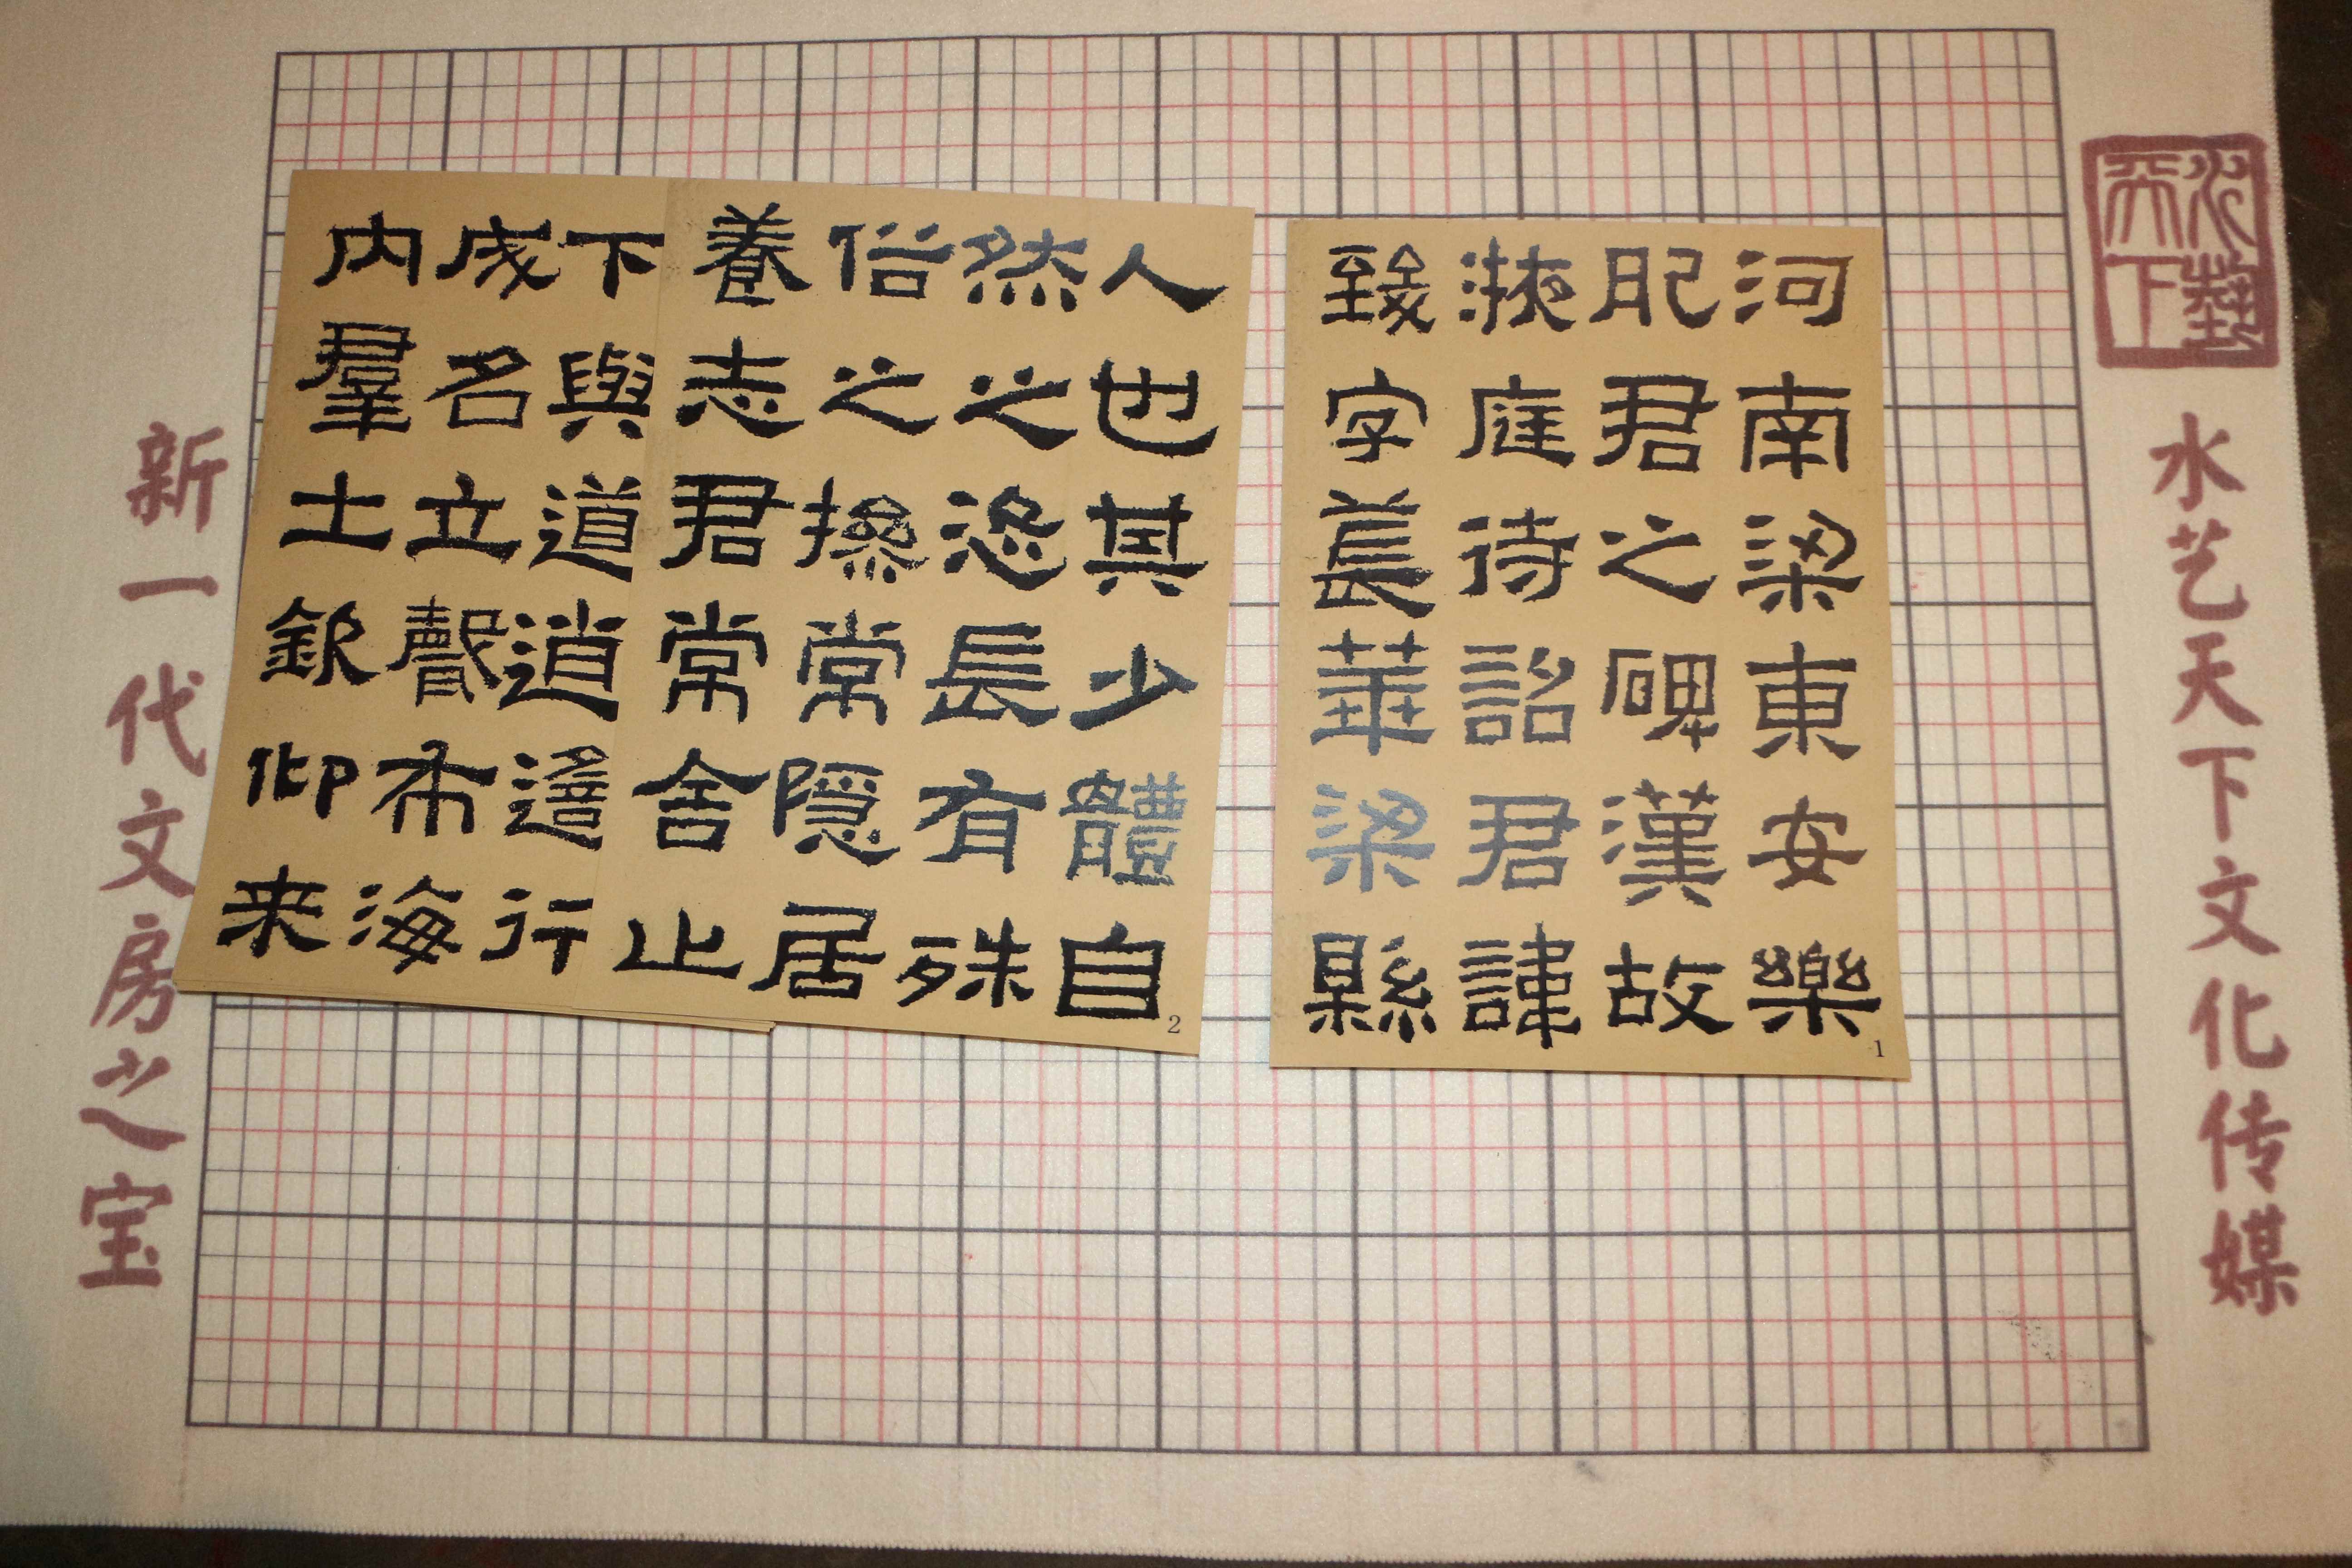 水藝天下
水艺天下文化传媒
河南梁東安樂
肥君之碑漢故
掖庭待詔君諱
致字萇華梁縣
1
人也其少體自
然之恣長有殊
俗之操常隱居
養志君常舍止
下與道逍遙行
成名立聲布海
内羣士欽仰来
2
新一代文房之宝